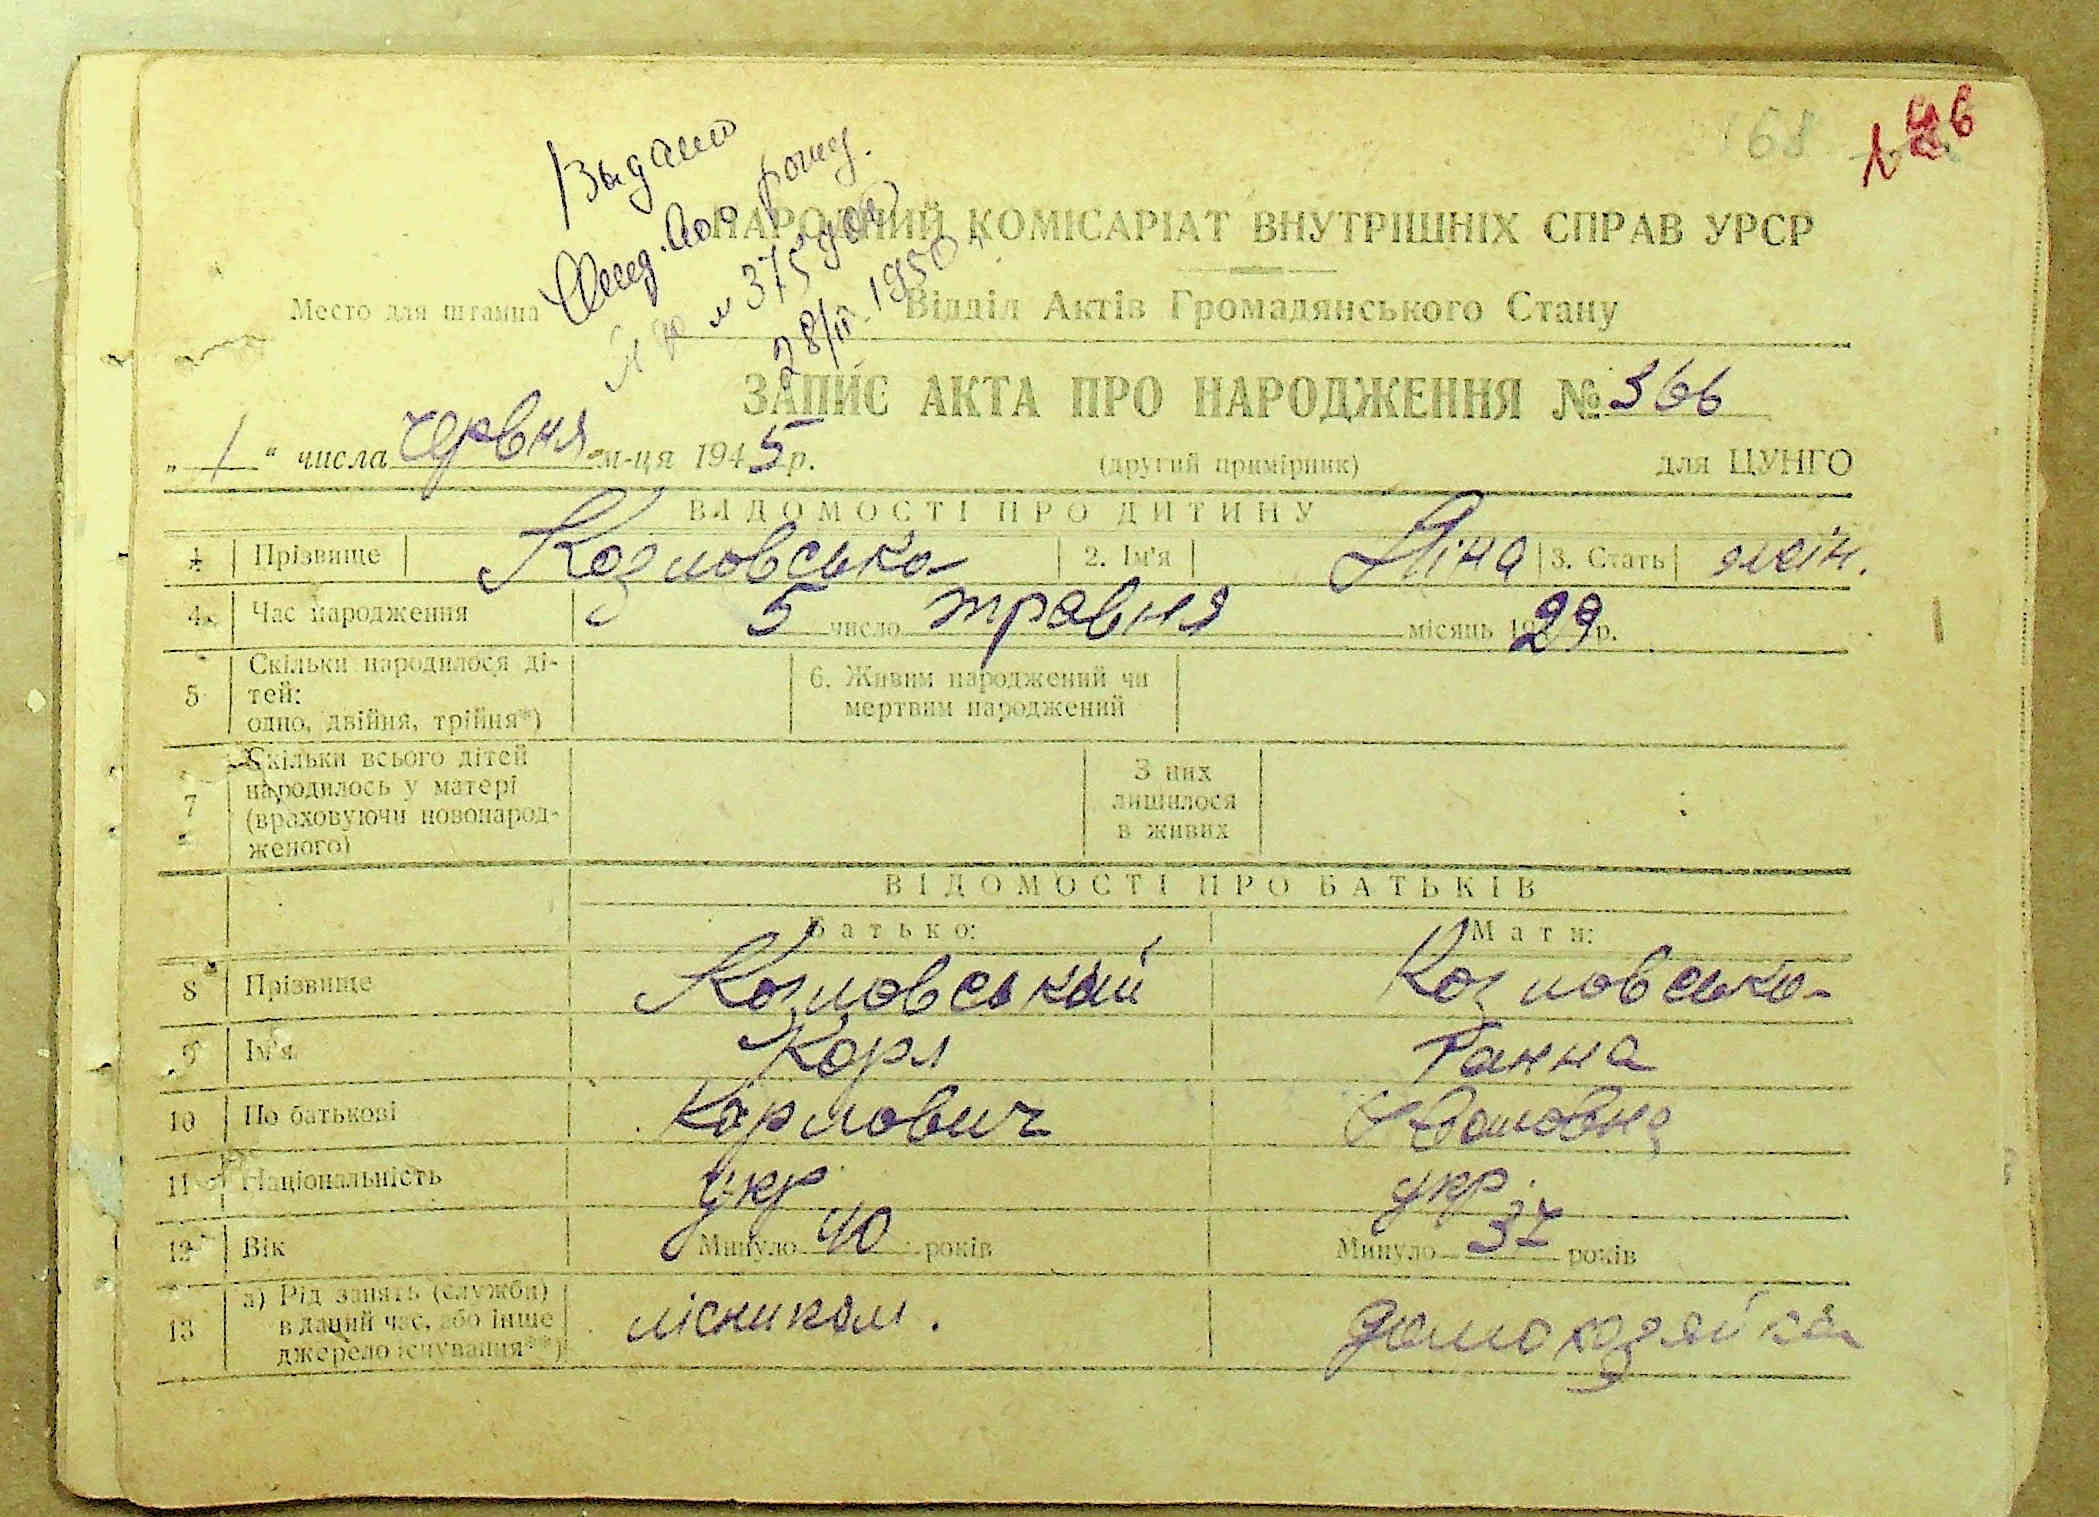 168
Выдано
Свид. о рожд.
№ 375
28/II 1950 г.
НАРОДНИЙ КОМІСАРІАТ ВНУТРІШНІХ СПРАВ УРСР
Место для штампа
Відділ Актів Громадянського Стану
ЗАПИС АКТА ПРО НАРОДЖЕННЯ № 366
„ 1 “ числа червня м-ця 1945 р. (другий примірник) для ЦУНГО
ВІДОМОСТІ ПРО ДИТИНУ
1 Прізвище Козловська 2. Ім'я Ніна 3. Стать жін.
4. Час народження 5 число травня місяць 1929 р.
5 Скільки народилося ді-
тей:
одно, двійня, трійня*)
6. Живим народжений чи
мертвим народжений
7 Скільки всього дітей
народилось у матері
(враховуючи новонарод-
женого)
З них
лишилося
в живих
ВІДОМОСТІ ПРО БАТЬКІВ
Батько: Мати:
8 Прізвище Козловський Козловська
9 Ім'я Карл Ганна
10 По батькові Карлович Івановна
11 Національність укр укр.
12 Вік Минуло 40 років Минуло 37 років
13 а) Рід занять (служби)
в даний час, або інше
джерело існування**)
лісником. домохозяйка